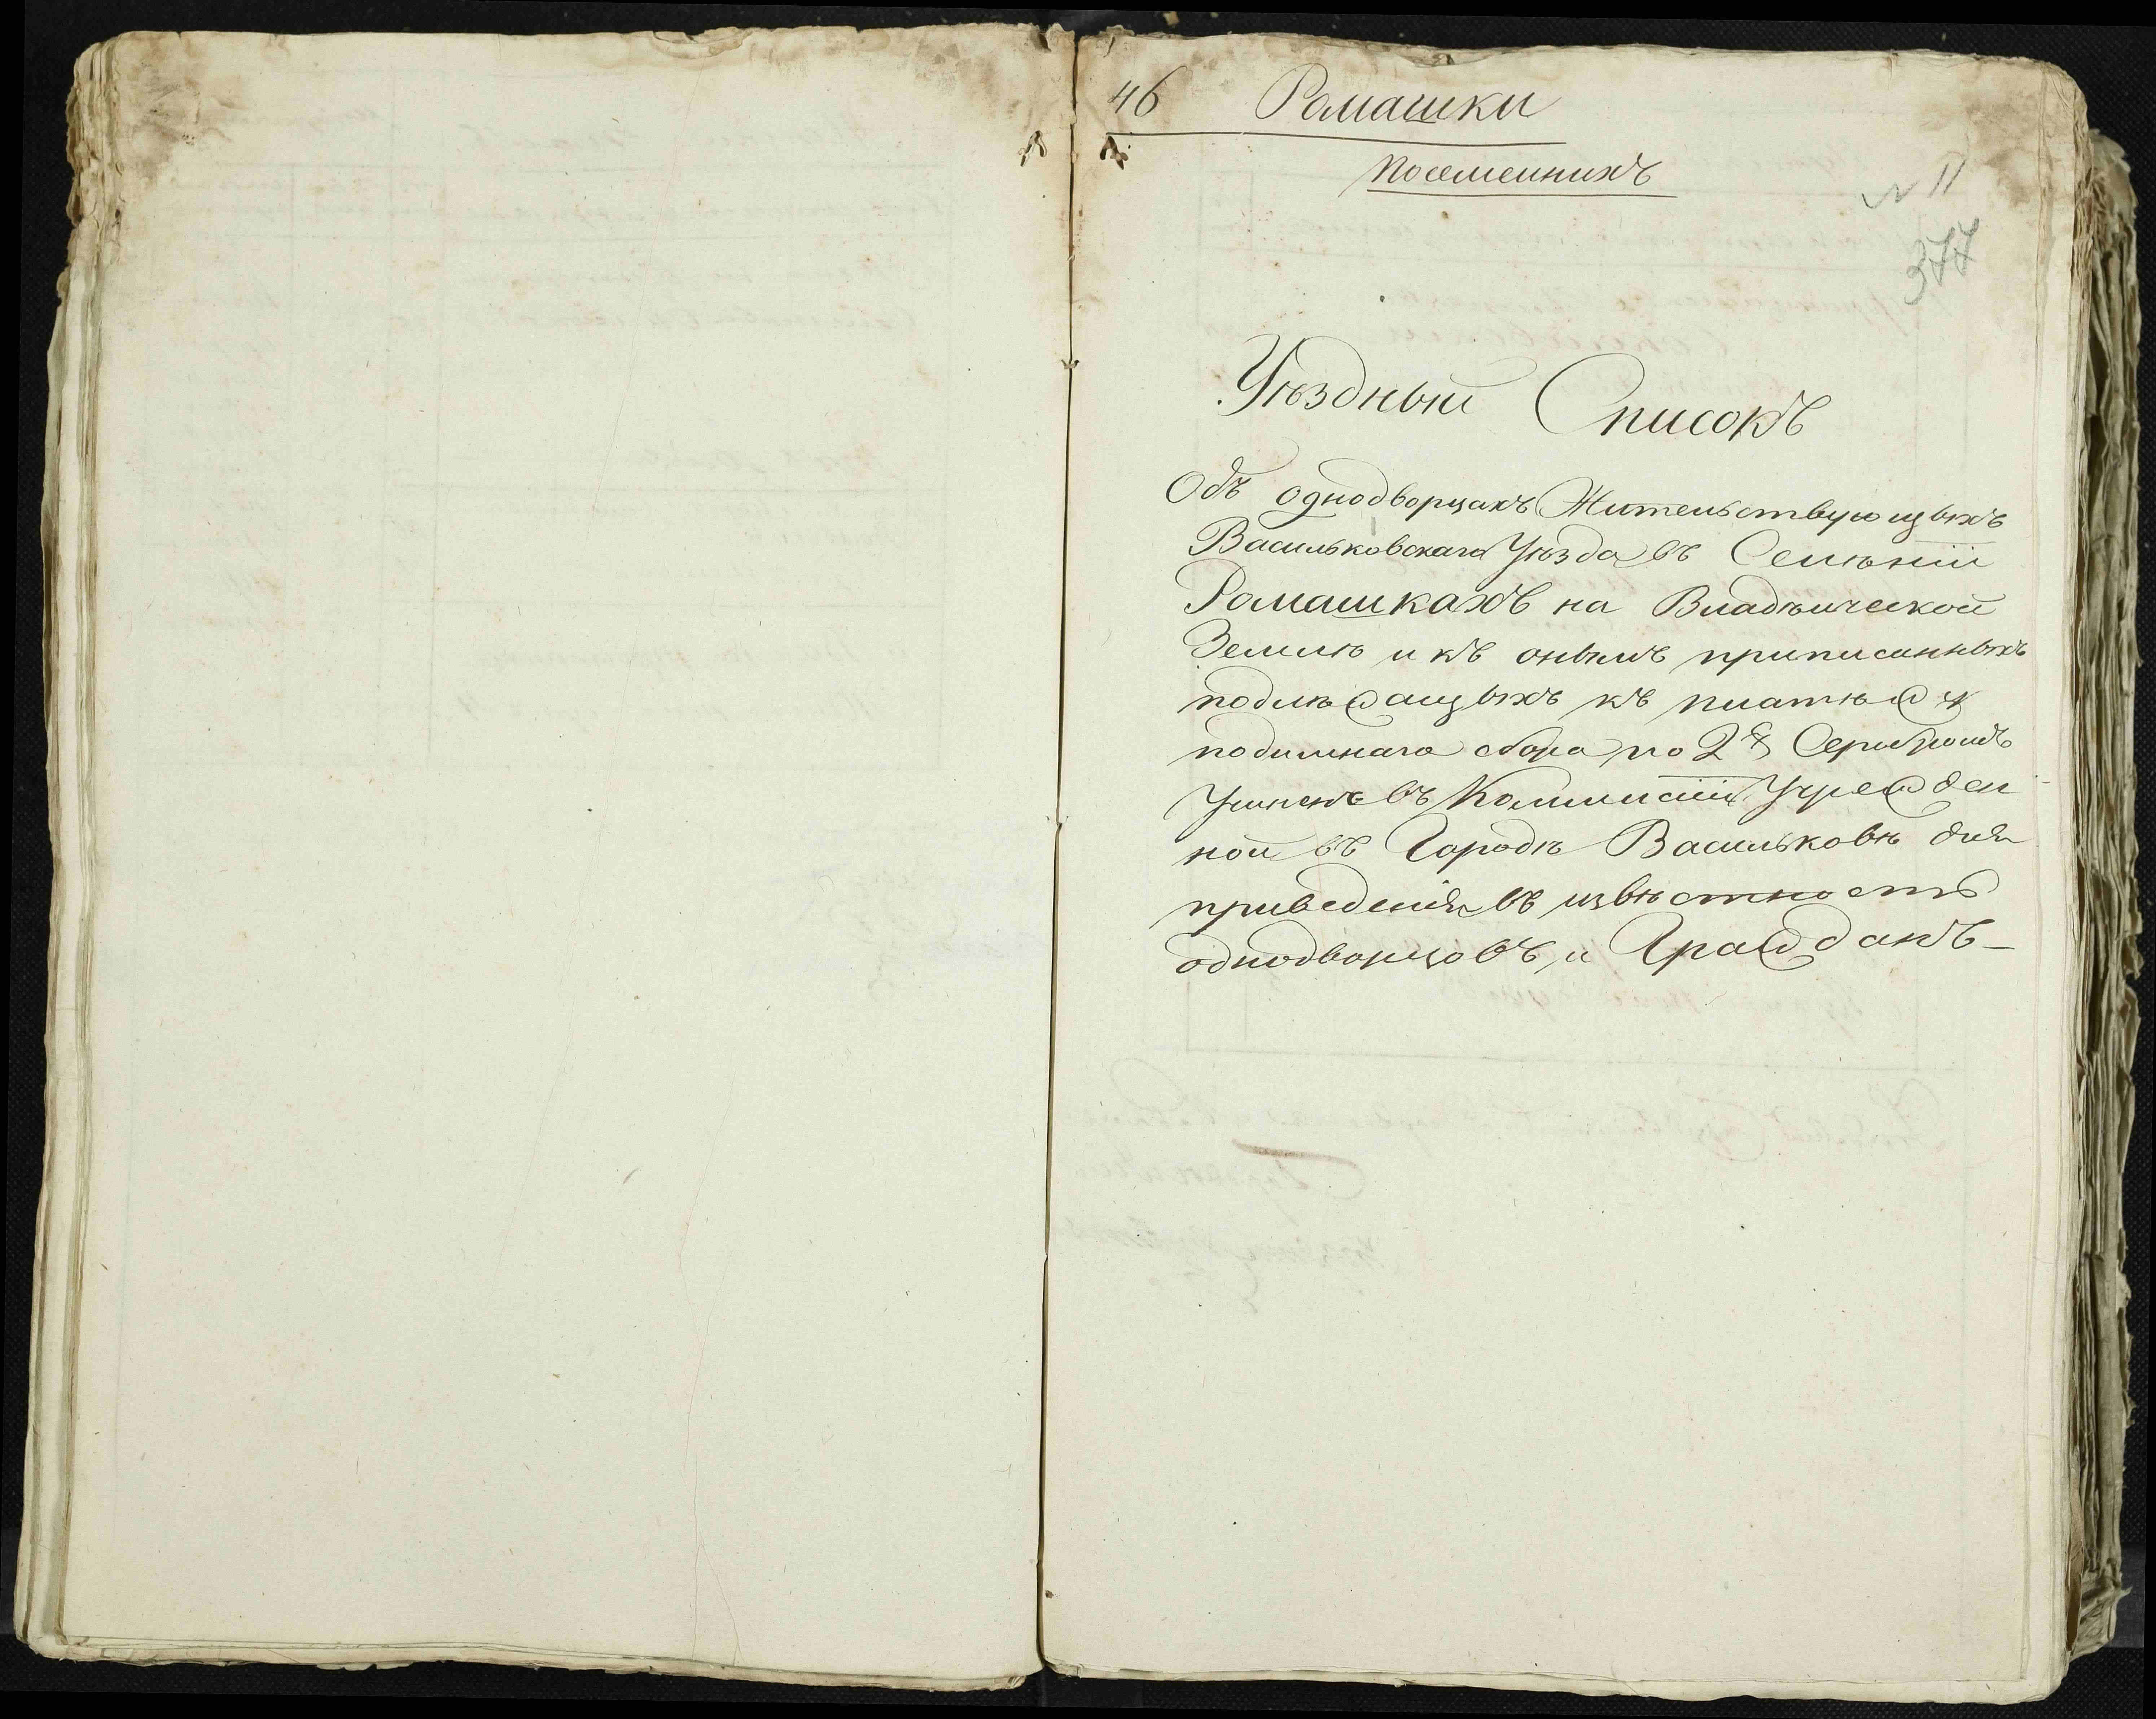 46 Ромашки
Посеменникъ
N 11
377
Уѣздный Списокъ
Объ однодворцахъ Жительствующыхъ
Васильковскаго Уѣзда въ Селѣніи
Ромашкахъ на Владѣлческой
Землѣ и къ онымъ приписанныхъ
подлѣжащыхъ къ платѣжу
подымнаго сбора по 2 Серебромъ
въ Коммисіи Учрежден
ной въ Городѣ Васильковѣ для
приведенія въ извѣстность
однодворцовъ и Гражданъ –